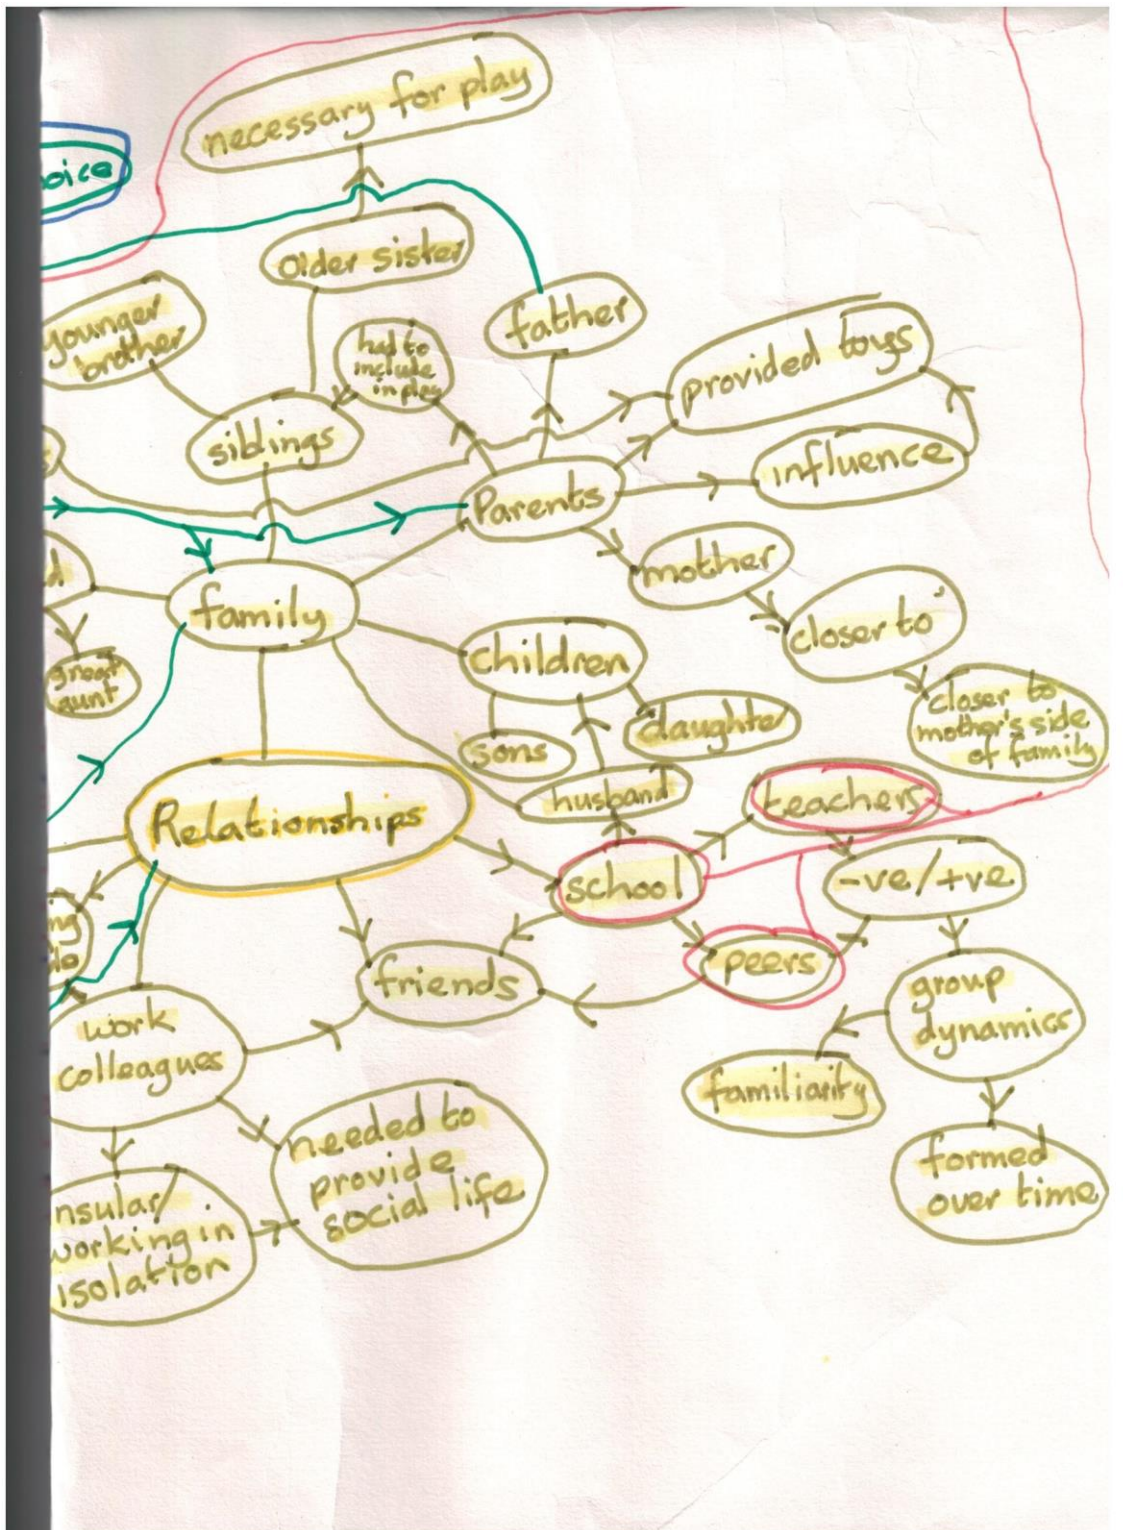 necessary for play
oice
older sister
younger
brother
had to
include
in play
father
provided toys
siblings
influence
Parents
mother
family
closer to
children
great
aunt
closer to
mother's side
of family
daughter
sons
husband
teachers
Relationships
school
-ve/+ve
peers
friends
group
dynamics
work
colleagues
familiarity
needed to
provide
social life
formed
over time
nsular/
working in
isolation